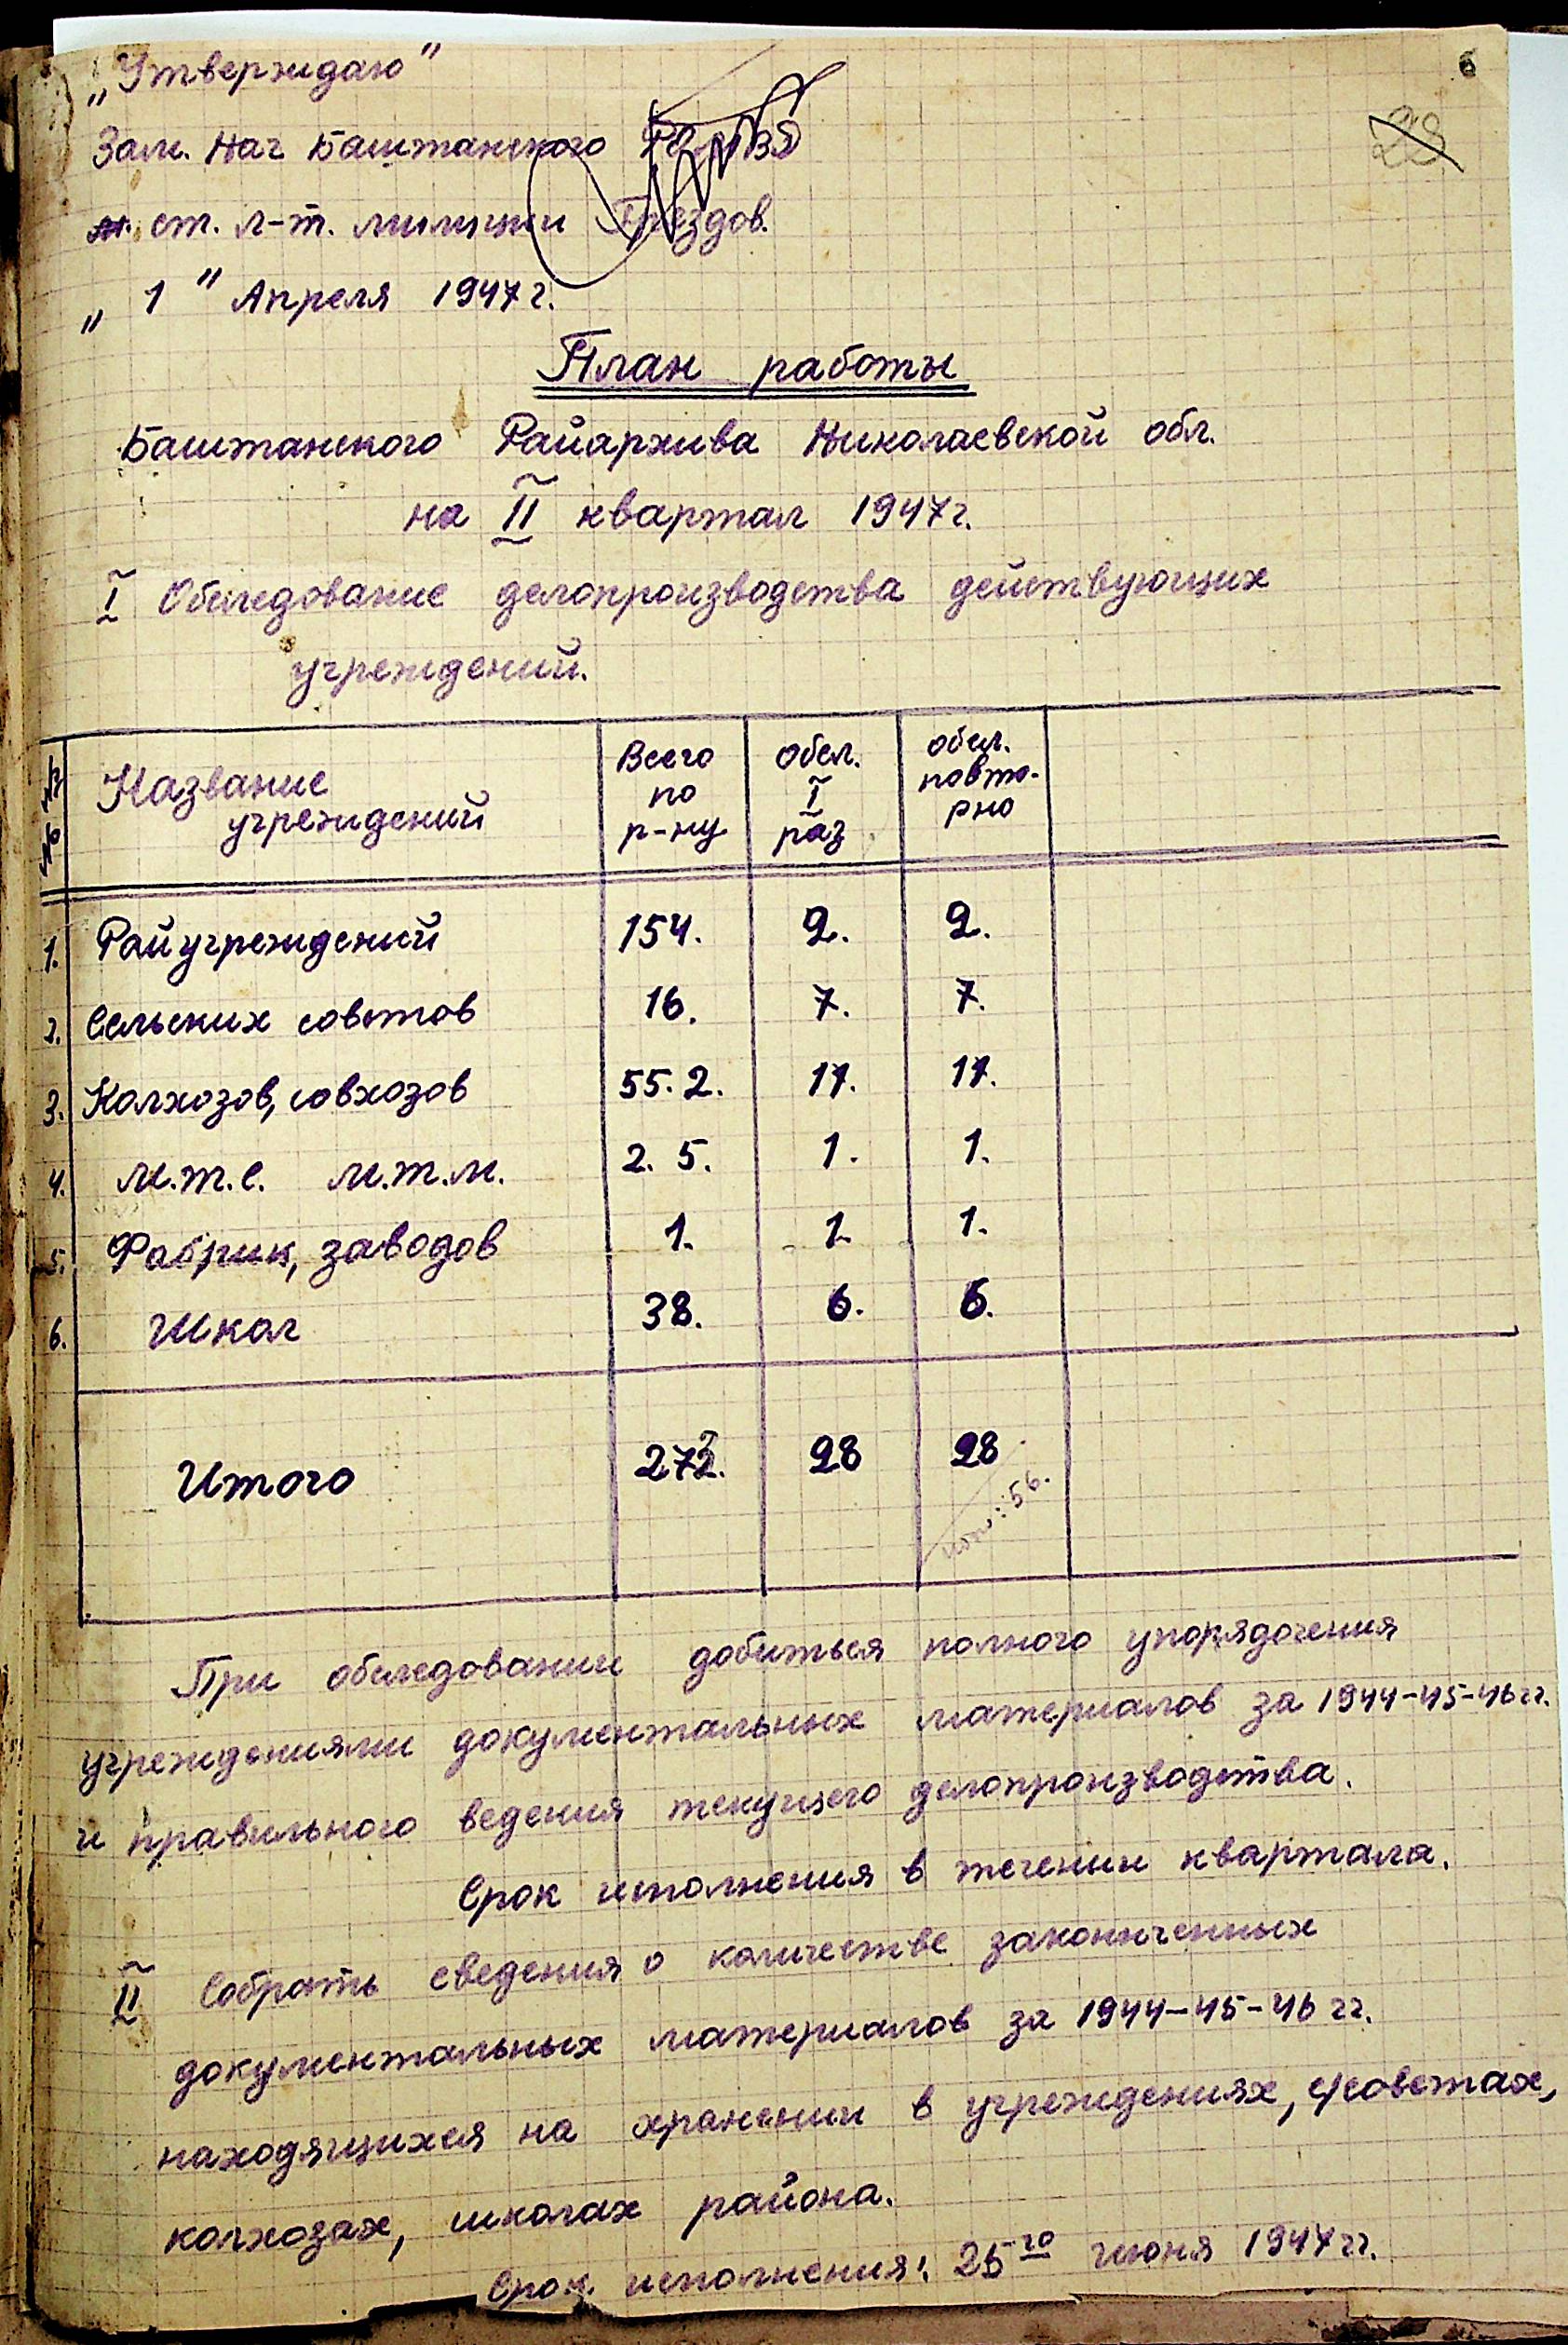 „Утверждаю"
6
29
Зам. Нач Баштанского РО МВД
ст. л-т. милиции Гнездов.
„ 1 " Апреля 1947 г.
План работы
Баштанского Райархива Николаевской обл.
на II квартал 1947 г.
I Обследование делопроизводства действующих
учреждений.
№№ Название учреждений Всего по р-ну обсл. I раз обсл. повто-рно
1. Райучреждений 154. 2. 2.
2. Сельских советов 16. 7. 7.
3. Колхозов, совхозов 55. 2. 11. 11.
4. м.т.с. м.т.м. 2. 5. 1. 1.
5. Фабрик, заводов 1. 1. 1.
6. Школ 38. 6. 6.
Итого 273. 28 28
: 56.
При обследовании добиться полного упорядочения
учреждениями документальных материалов за 1944-45-46 гг.
и правильного ведения текущего делопроизводства.
Срок исполнения в течении квартала.
II Собрать сведения о количестве законченных
документальных материалов за 1944-45-46 гг.
находящихся на хранении в учреждениях, с/советах,
колхозах, школах района.
Срок. исполнения: 25го июня 1947 гг.